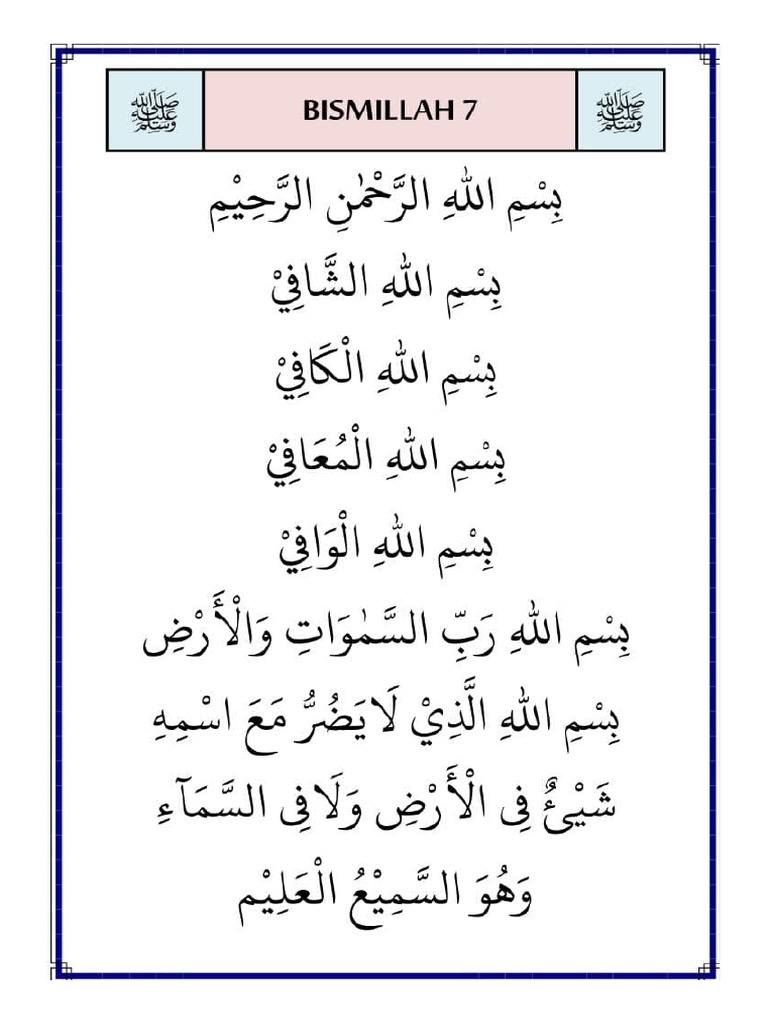 ﷺ BISMILLAH 7 ﷺ
بِسْمِ اللهِ الرَّحْمٰنِ الرَّحِيْمِ
بِسْمِ اللهِ الشَّافِيْ
بِسْمِ اللهِ الْكَافِيْ
بِسْمِ اللهِ الْمُعَافِيْ
بِسْمِ اللهِ الْوَافِيْ
بِسْمِ اللهِ رَبِّ السَّمٰوَاتِ وَالْأَرْضِ
بِسْمِ اللهِ الَّذِيْ لَا يَضُرُّ مَعَ اسْمِهِ
شَيْئٌ فِى الْأَرْضِ وَلَا فِى السَّمَآءِ
وَهُوَ السَّمِيْعُ الْعَلِيْم